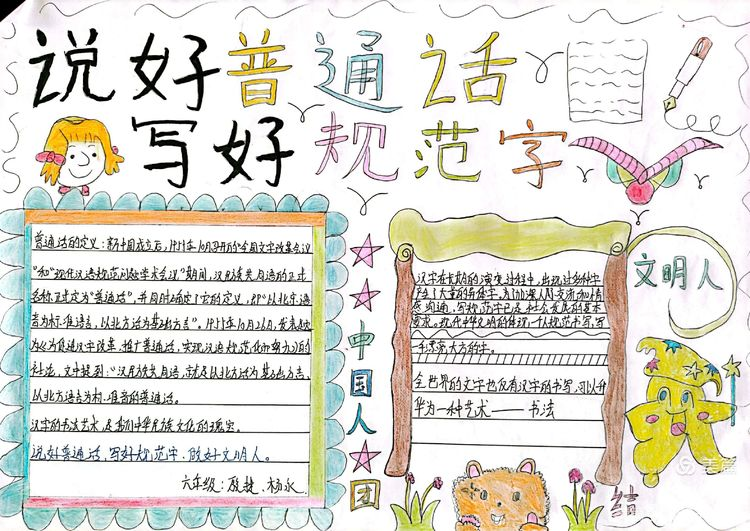 说好普通话
写好规范字
普通话的定义：新中国成立后，1955年10月召开的“全国文字改革会议”
和“现代汉语规范问题学术会议”期间，汉民族共同语的正式
名称正式定为“普通话”，并同时确定了它的定义，即“以北京语
音为标准语音，以北方话为基础方言”。1955年10月26日，发表
为《为促进汉字改革、推广普通话、实现汉语规范化而努力》的
社论，文中提到：“汉民族共同语，就是以北方话为基础方言，
以北方语音为标准音的普通话。
汉字的书法艺术，是我们中华民族文化的瑰宝。
说好普通话，写好规范字，做好文明人。
六年级：殷捷、杨永
中国人团结
汉字在长期的演变过程中，出现过多种字
产生了大量的异体字，为加强人们交流加情
感沟通，写规范字已是社会发展的基本
要求。现代中华文明的体现，千人规范书写，写
一手漂亮大方的字。
全世界的文字也仅有汉字的书写，可以升
华为一种艺术——书法
文明人
美篇